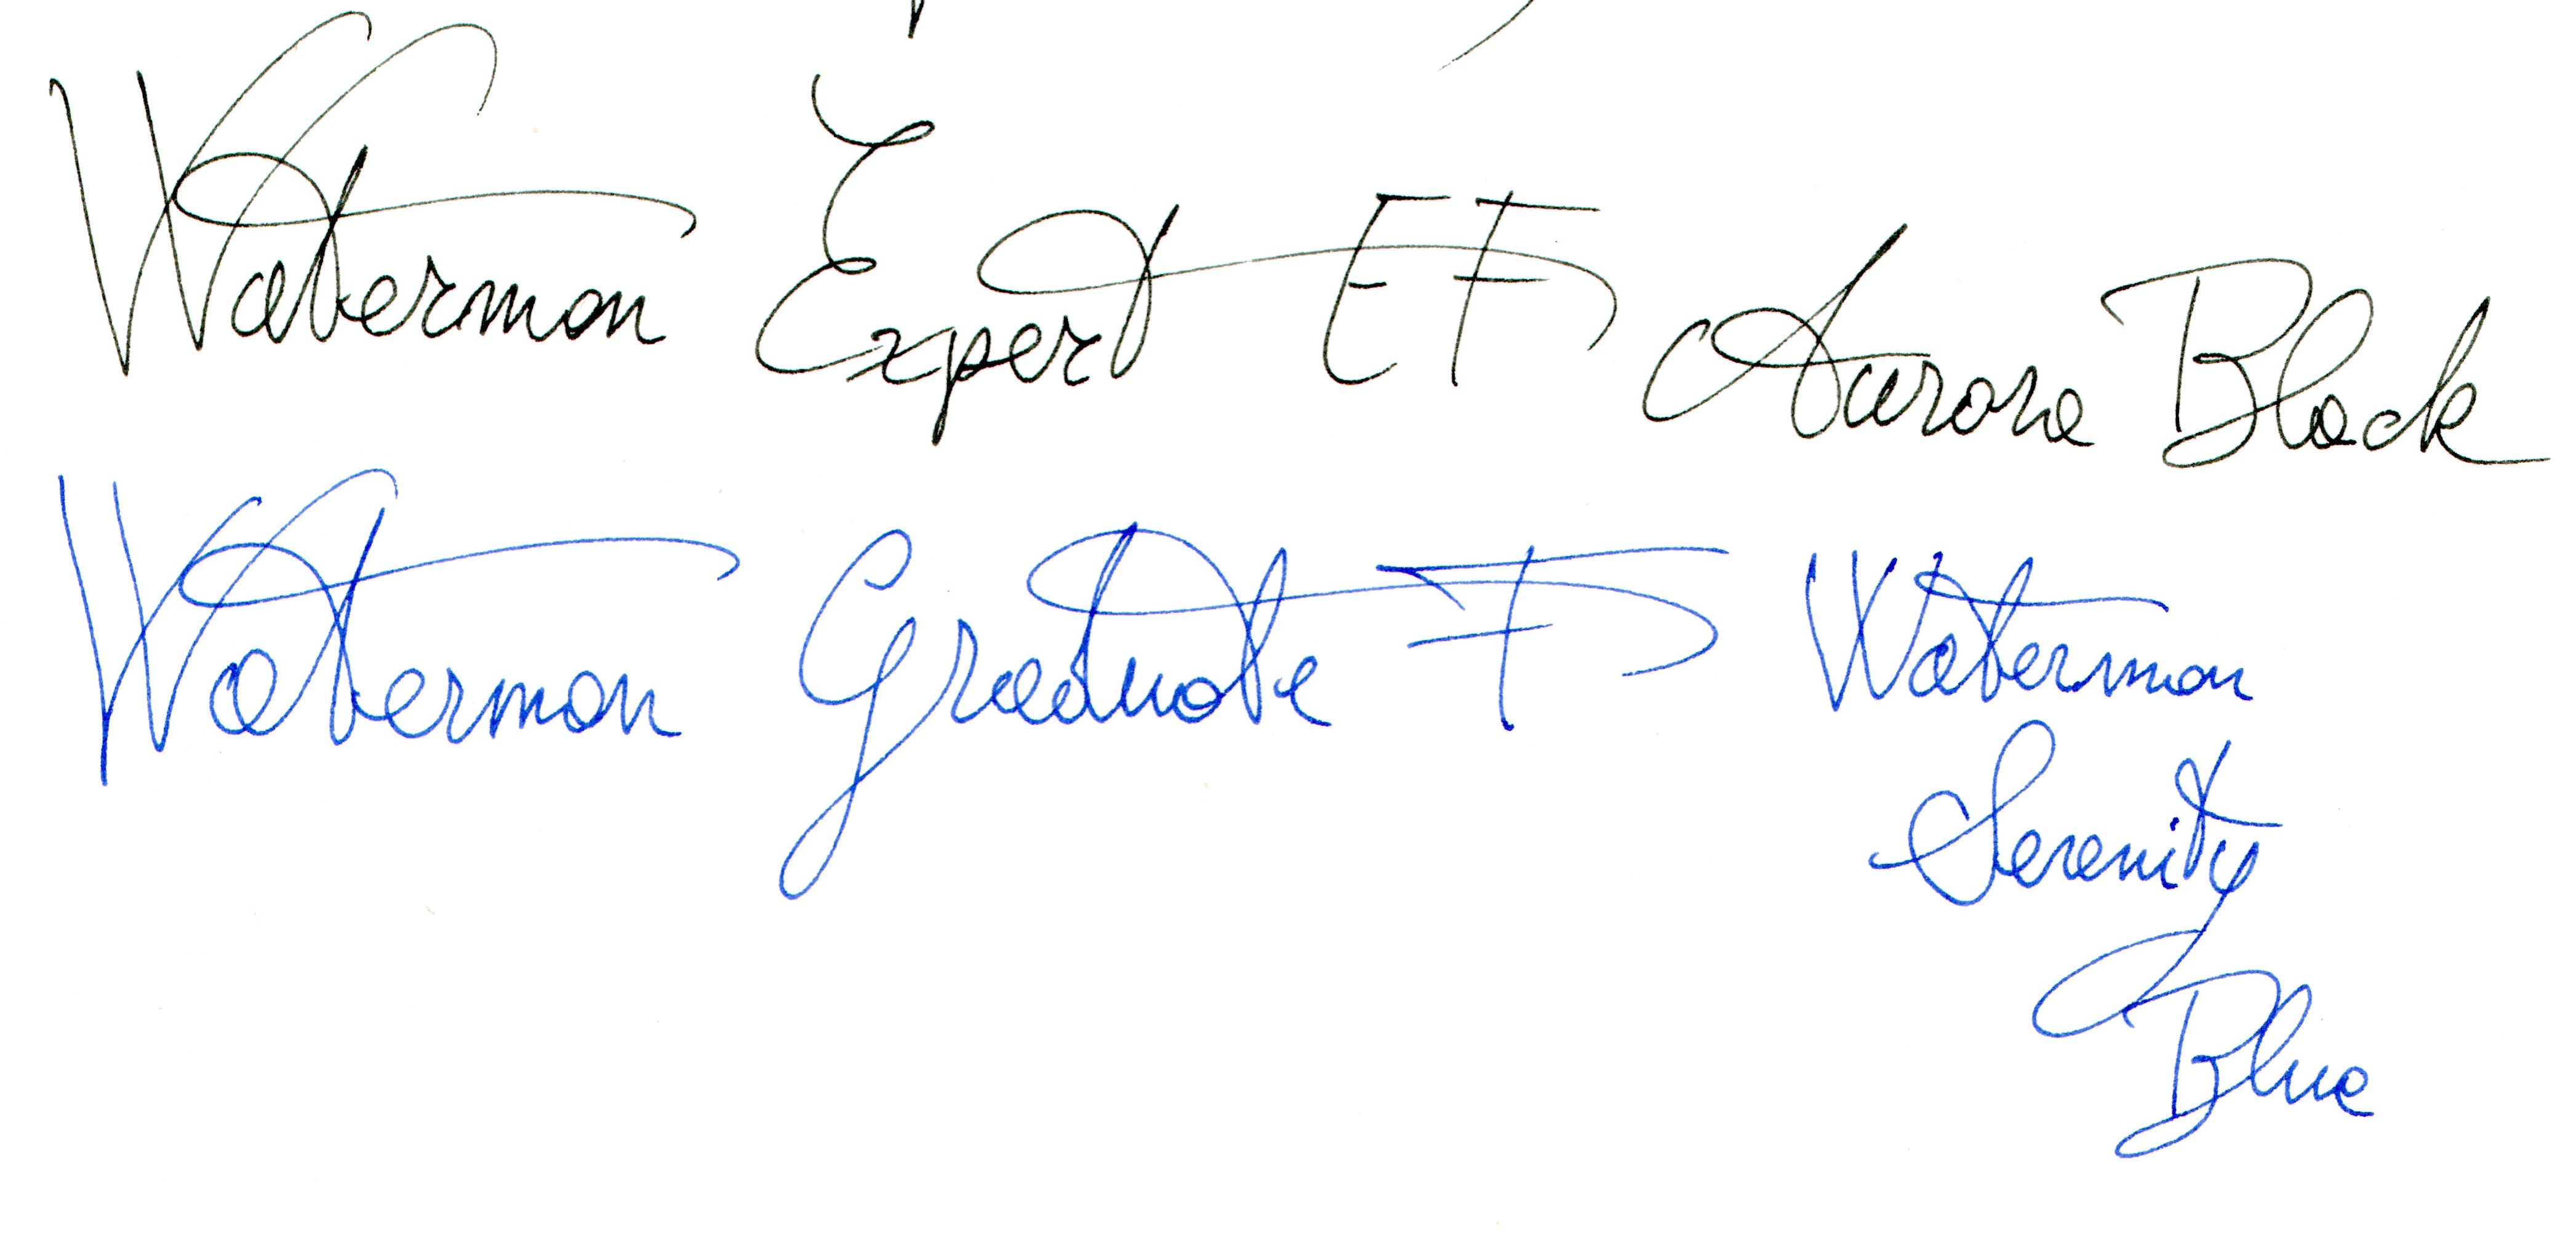 Waterman Expert EF Aurora Black
Waterman Graduate F Waterman
Serenity
Blue